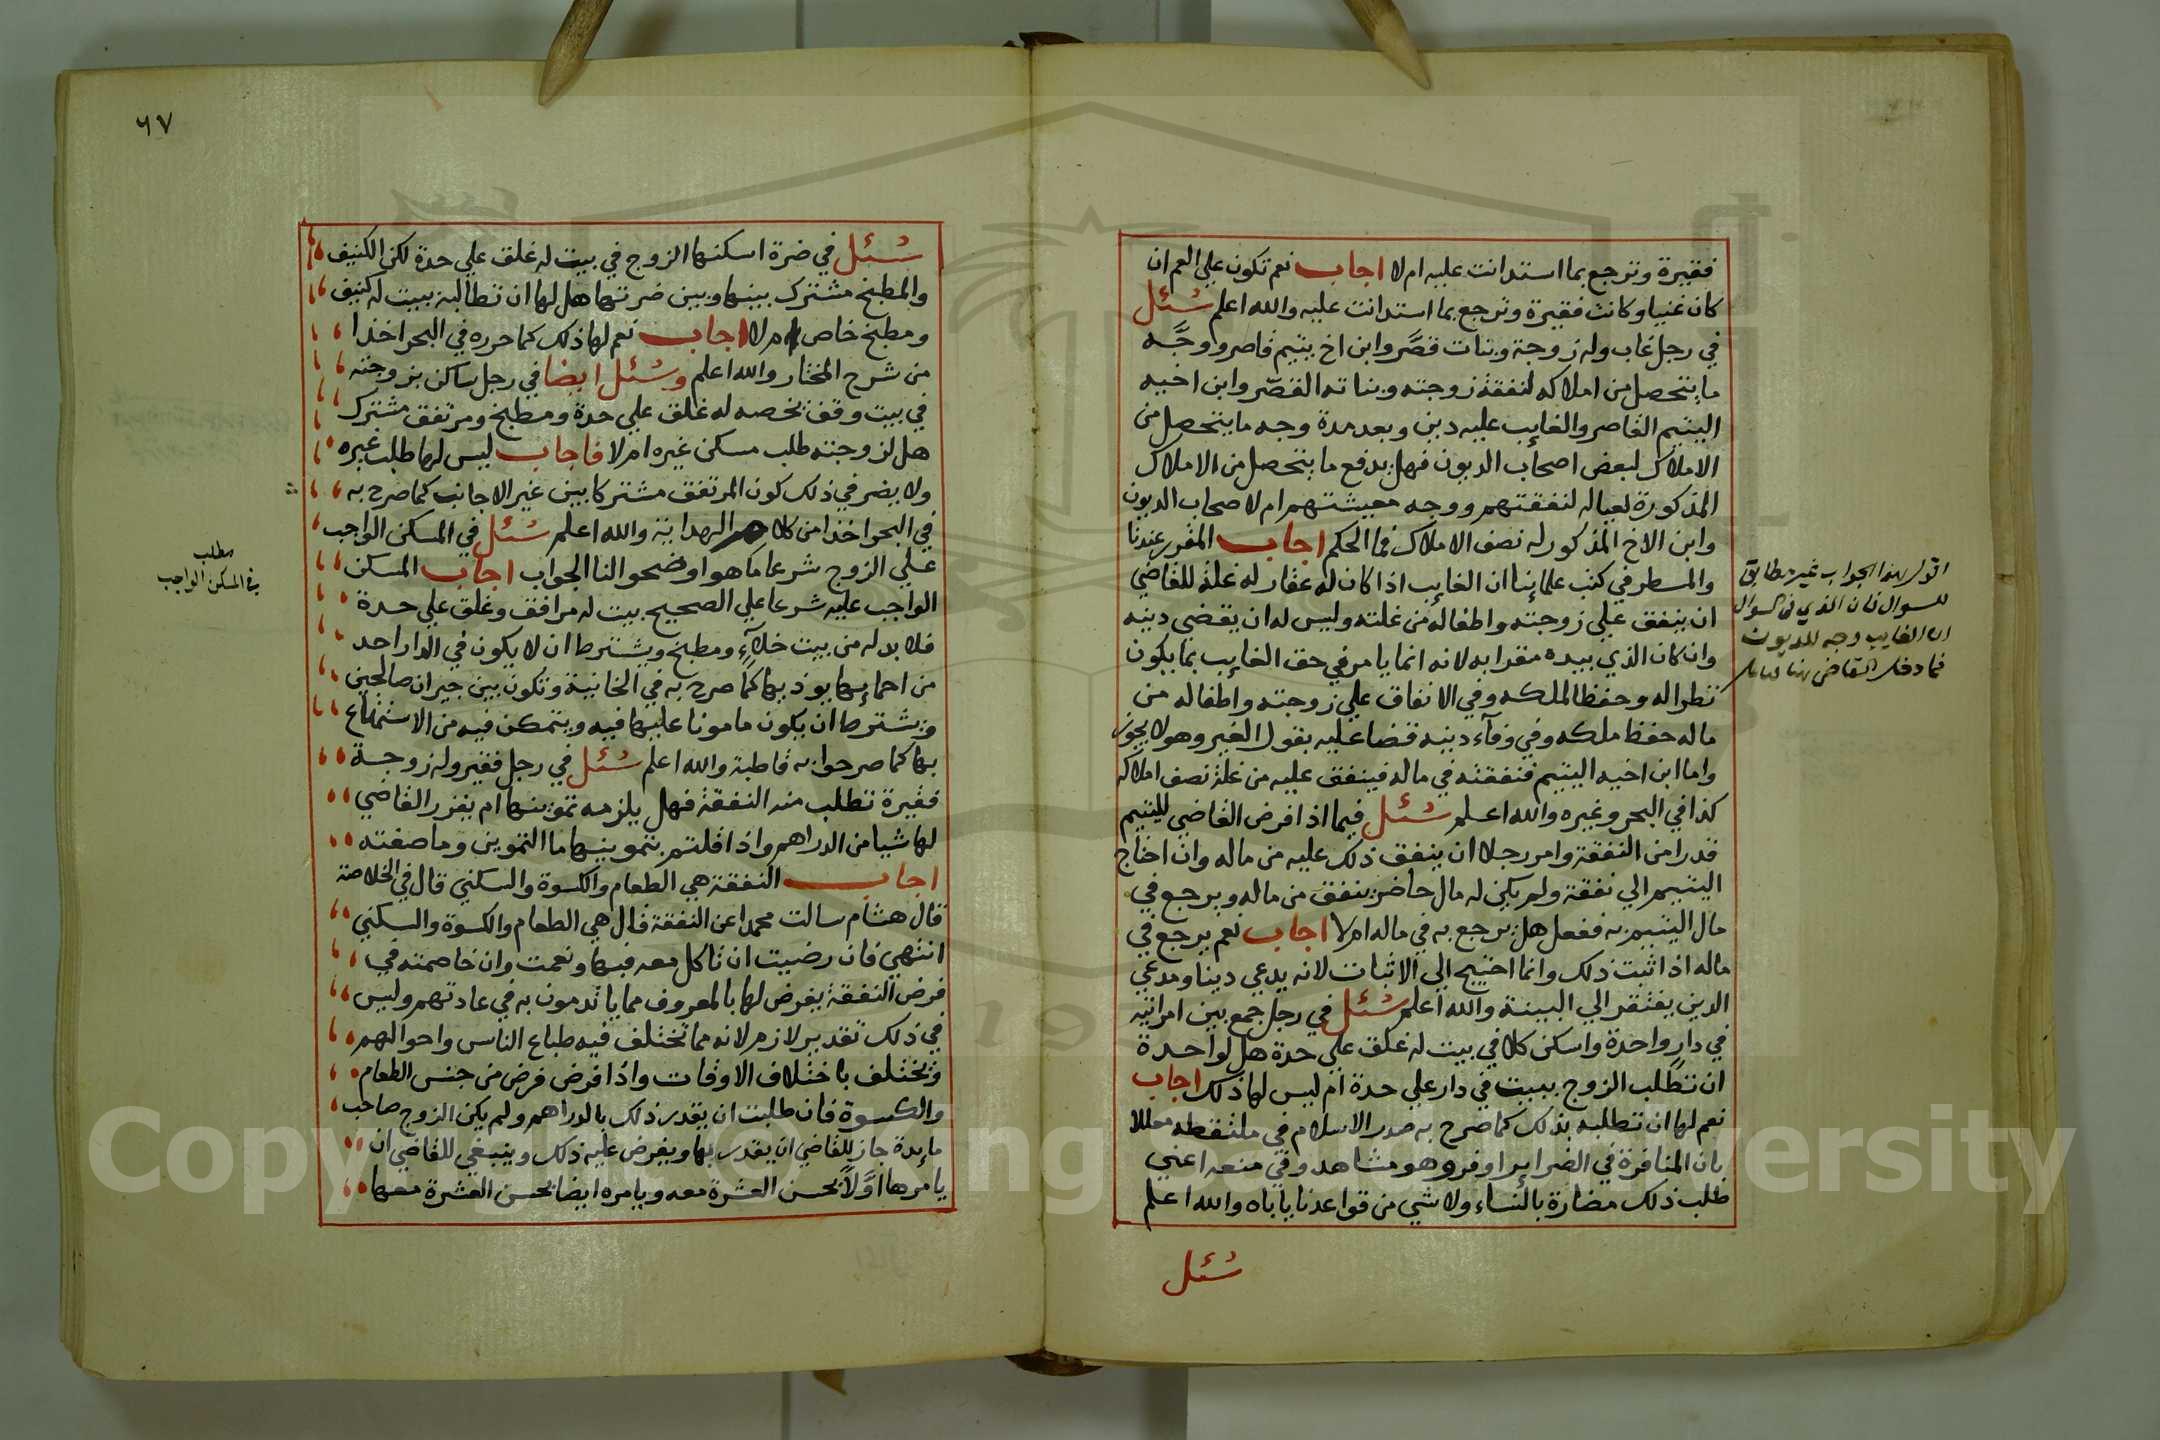 فقيرة وترجع بما استدانت عليه ام لا اجاب نعم تكون علي العم ان
كان غنيا وكانت فقيرة وترجع بما استدانت عليه والله اعلم سئل
في رجل غاب وله زوجة وبنات قصّر وابن اخ يتيم قاصر ووجّه
ما يتحصل من املاكه لنفقة زوجته وبناته القصّر وابن اخيه
اليتيم القاصر والغايب عليه دين وبعد مدة وجه ما يتحصل من
الاملاك لبعض اصحاب الديون فهل يدفع ما يتحصل من الاملاك
المذكورة لعياله لنفقتهم ووجه معيشتهم ام لاصحاب الديون
وابن الاخ المذكور له نصف الاملاك فما الحكم اجاب المقرر عندنا
والمسطر في كتب علمائنا ان الغايب اذا كان له عقار له غلة للقاضي
ان ينفق علي زوجته واطفاله من غلته وليس له ان يقضي دينه
وان كان الذي بيده مقرا به لانه انما يامر في حق الغايب بما يكون
نظرا له وحفظا لملكه وفي الانفاق علي زوجته واطفاله من
ماله حفظ ملكه وفي وفآء دينه قضا عليه بقول الغير وهو لا يجوز
واما ابن اخيه اليتيم فنفقته في ماله فينفق عليه من غلة نصف املاكه
كذا في البحر وغيره والله اعلم سئل فيما اذا فرض القاضي لليتيم
قدرا من النفقة وامر رجلا ان ينفق ذلك عليه من ماله وان احتاج
اليتيم الي نفقة ولم يكن له مال حاضر ينفق من ماله ويرجع في
مال اليتيم به ففعل هل يرجع به في ماله ام لا اجاب نعم يرجع في
ماله اذا ثبت ذلك وانما احتيج الي الاثبات لانه يدعي دينا ومدعي
الدين يفتقر الي البينة والله اعلم سئل في رجل جمع بين امراتيه
في دار واحدة واسكن كلا في بيت له غلق علي حدة هل لواحدة
ان تطلب الزوج ببيت في دار علي حدة ام ليس لها ذلك اجاب
نعم لها ان تطلبه بذلك كما صرح به صدر الاسلام في ملتقطه معللا
بان المنافرة في الضراير اوفر وهو مشاهد وفي منعه اعني
طلب ذلك مضارة بالنساء ولا شي من قواعدنا ياباه والله اعلم
سئل
اقول هذا الجواب غير مطابق
للسوال فان الذي في السوال
ان الغايب وجه للديون
فما دخل القاضي هنا تامل
٦٧
سئل في ضرة اسكنها الزوج في بيت له غلق علي حدة لكن الكنيف
والمطبخ مشترك بينها وبين ضرتها هل لها ان تطالبه ببيت له كنيف
ومطبخ خاص ام لا اجاب نعم لها ذلك كما حرره في البحر اخذا
من شرح المختار والله اعلم وسئل ايضا في رجل ساكن بزوجته
في بيت وقف يخصه له غلق علي حدة ومطبخ ومرتفق مشترك
هل لزوجته طلب مسكن غيره ام لا فاجاب ليس لها طلب غيره
ولا يضر في ذلك كون المرتفق مشتركا بين غير الاجانب كما صرح به
في البحر اخذا من كلام الهداية والله اعلم سئل في المسكن الواجب
علي الزوج شرعا ما هو اوضحوا لنا الجواب اجاب المسكن
الواجب عليه شرعا علي الصحيح بيت له مرافق وغلق علي حدة
فلا بد له من بيت خلآء ومطبخ ويشترط ان لا يكون في الدار احد
من احمائها يوذيها كما صرح به في الخانية وتكون بين جيران صالحين
ويشترط ان يكون مامونا عليها فيه ويتمكن فيه من الاستمتاع
بها كما صرحوا به قاطبة والله اعلم سئل في رجل فقير وله زوجة
فقيرة تطلب منه النفقة فهل يلزمه تموينها ام يقرر القاضي
لها شيا من الدراهم واذا قلتم بتموينها ما التموين وما صفته
اجاب النفقة هي الطعام والكسوة والسكني قال في الخلاصة
قال هشام سالت محمدا عن النفقة قال هي الطعام والكسوة والسكني
انتهي فان رضيت ان تاكل معه فبها ونعمت وان خاصمته في
فرض النفقة يفرض لها بالمعروف مما ياتدمون به في عادتهم وليس
في ذلك تقدير لازم لانه مما تختلف فيه طباع الناس واحوالهم
وتختلف باختلاف الاوقات واذا فرض فرض من جنس الطعام
والكسوة فان طلبت ان يقدر ذلك بالدراهم ولم يكن الزوج صاحب
مايدة جاز للقاضي ان يقدر بها ويفرض عليه ذلك وينبغي للقاضي ان
يامرها اوّلاً بحسن العشرة معه ويامره ايضا بحسن العشرة معها
مطلب
في المسكن الواجب
Copyright © King Saud University